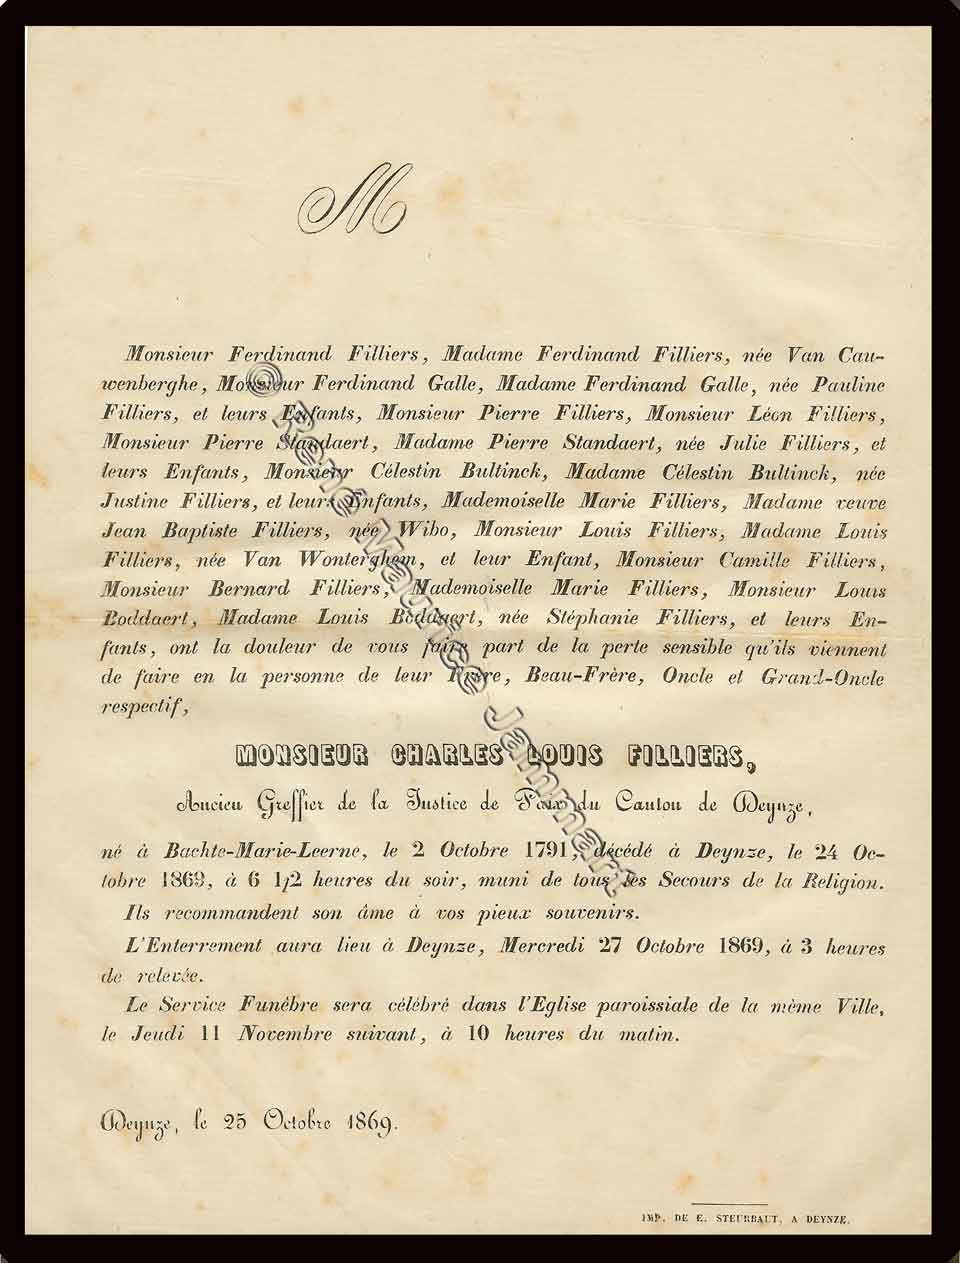 M
Monsieur Ferdinand Filliers, Madame Ferdinand Filliers, née Van Cau-
wenberghe, Monsieur Ferdinand Galle, Madame Ferdinand Galle, née Pauline
Filliers, et leurs Enfants, Monsieur Pierre Filliers, Monsieur Léon Filliers,
Monsieur Pierre Standaert, Madame Pierre Standaert, née Julie Filliers, et
leurs Enfants, Monsieur Célestin Bultinck, Madame Célestin Bultinck, née
Justine Filliers, et leurs Enfants, Mademoiselle Marie Filliers, Madame veuve
Jean Baptiste Filliers, née Wibo, Monsieur Louis Filliers, Madame Louis
Filliers, née Van Wonterghem, et leur Enfant, Monsieur Camille Filliers,
Monsieur Bernard Filliers, Mademoiselle Marie Filliers, Monsieur Louis
Boddaert, Madame Louis Boddaert, née Stéphanie Filliers, et leurs En-
fants, ont la douleur de vous faire part de la perte sensible qu'ils viennent
de faire en la personne de leur Frère, Beau-Frère, Oncle et Grand-Oncle
respectif,
MONSIEUR CHARLES LOUIS FILLIERS,
Ancien Greffier de la Justice de Paix du Canton de Deynze,
né à Bachte-Marie-Leerne, le 2 Octobre 1791, décédé à Deynze, le 24 Oc-
tobre 1869, à 6 1/2 heures du soir, muni de tous les Secours de la Religion.
Ils recommandent son âme à vos pieux souvenirs.
L'Enterrement aura lieu à Deynze, Mercredi 27 Octobre 1869, à 3 heures
de relevée.
Le Service Funèbre sera célébré dans l'Eglise paroissiale de la même Ville,
le Jeudi 11 Novembre suivant, à 10 heures du matin.
Deynze, le 25 Octobre 1869.
IMP. DE E. STEURBAUT, A DEYNZE.
© René Maurice Jammart